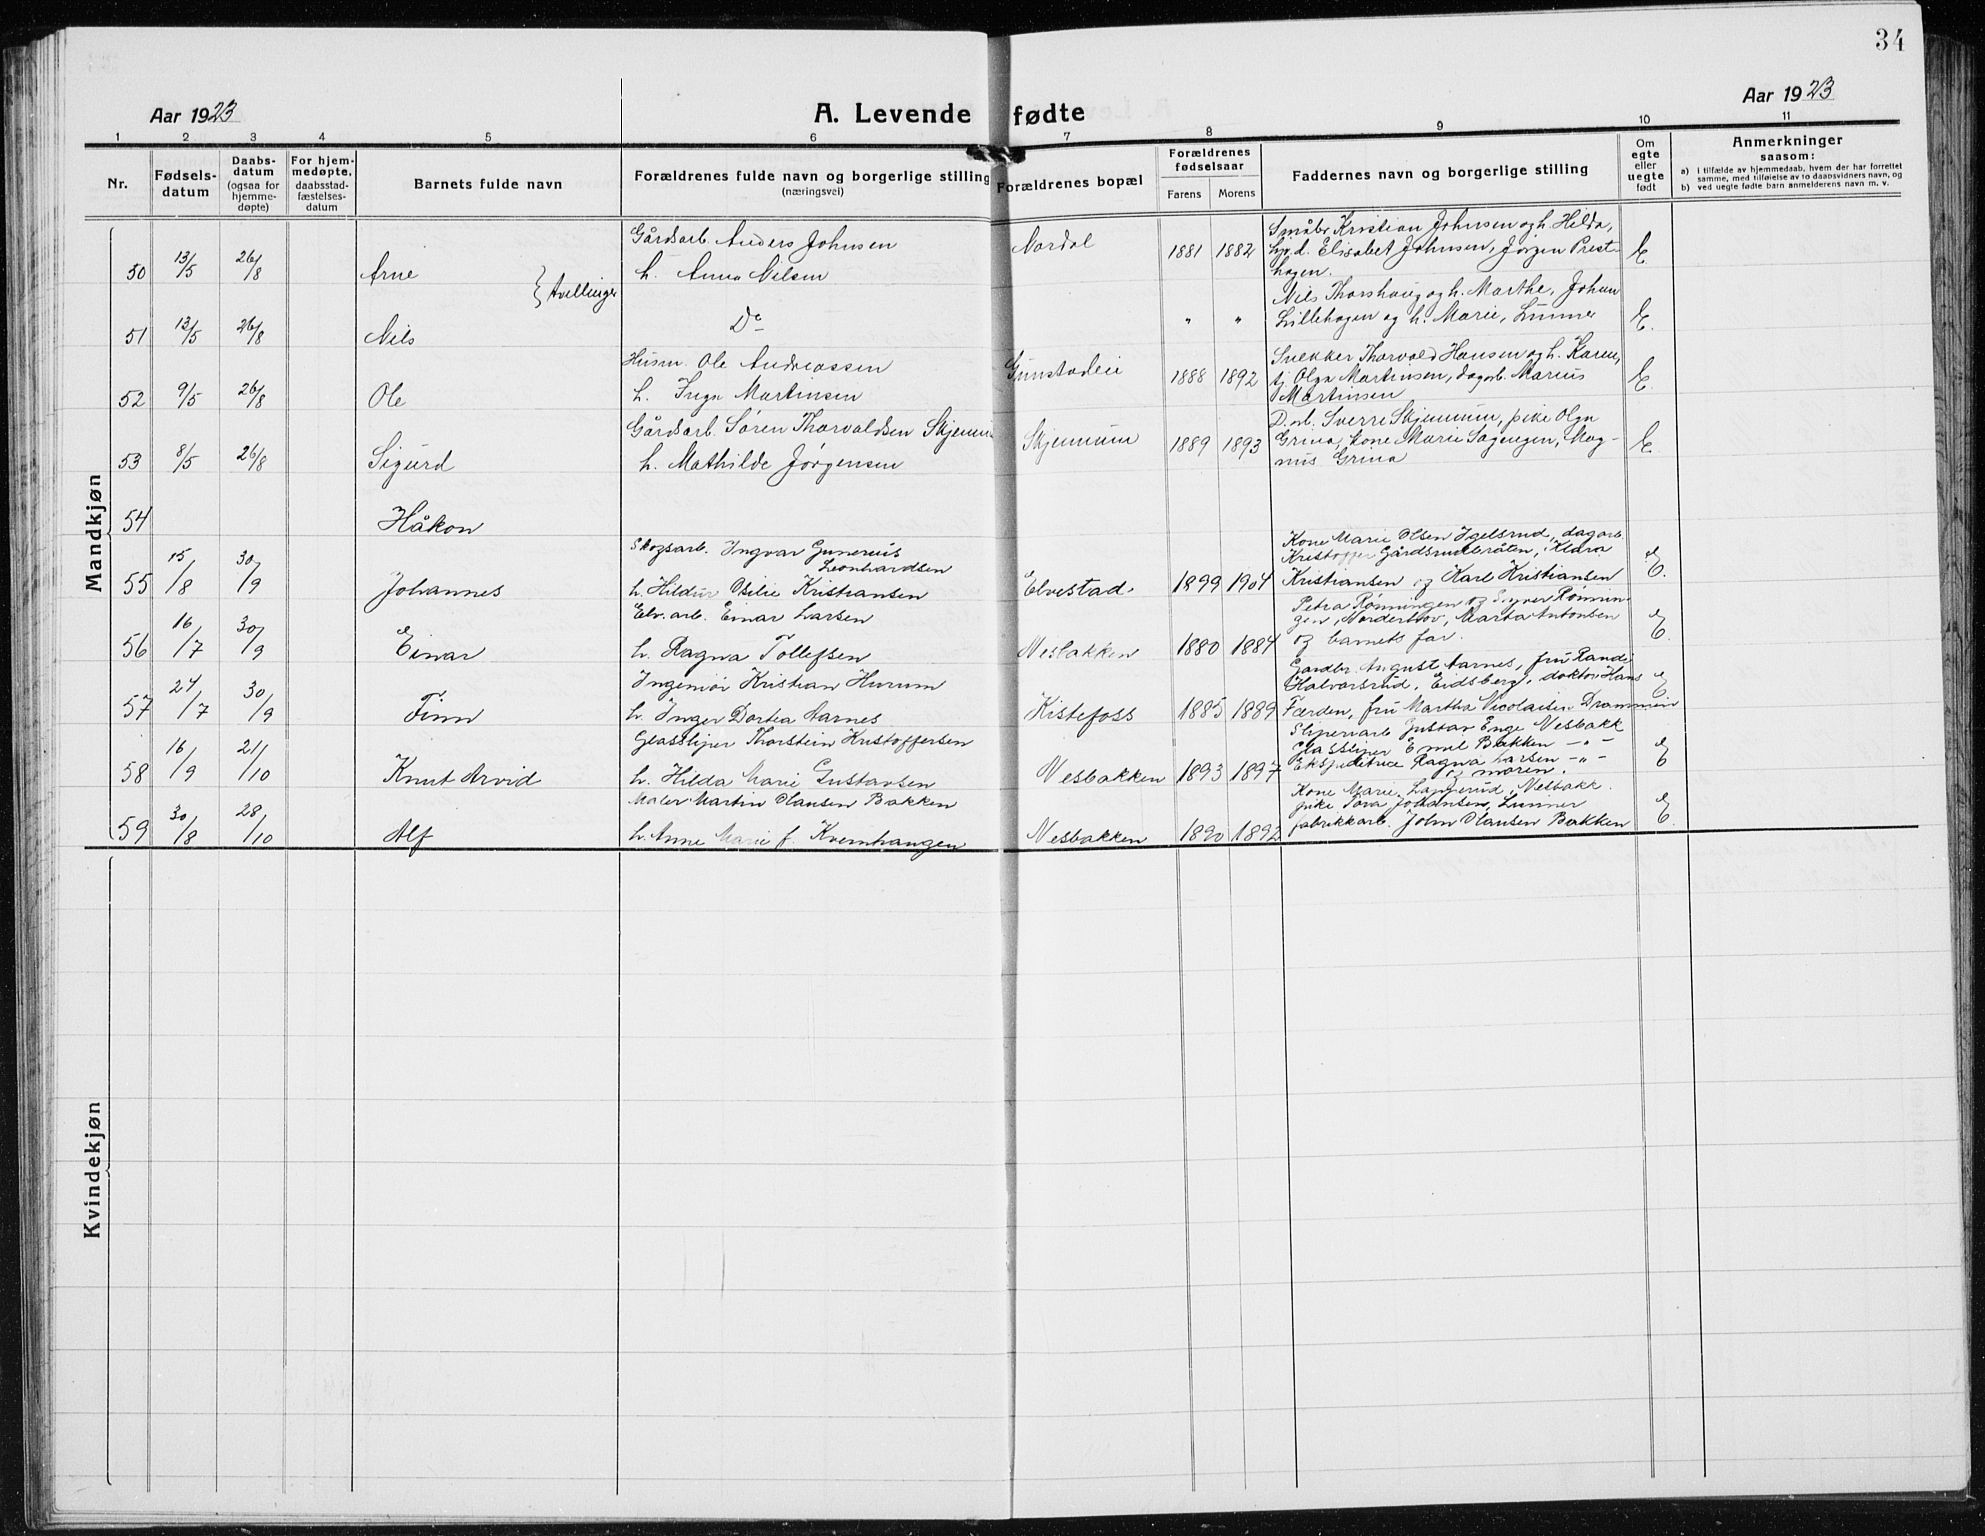 34
Aar 1923
A. Levende fødte
Aar 1923
1 2 3 4 5 6 7 8 9 10 11
Nr.
Fødsels-datum
Daabs-datum (ogsaa for hjemme-døpte)
For hjem-medøpte, daabsstad-fæstelses-datum
Barnets fulde navn
Forældrenes fulde navn og borgerlige stilling (næringsvei)
Forældrenes bopæl
Forældrenes fødselsaar
Farens Morens
Faddernes navn og borgerlige stilling
Om egte eller uegte født
Anmerkninger
saasom:
a) i tilfælde av hjemmedaab, hvem der har forrettet samme, med tilføielse av to daabsvidners navn, og
b) ved uegte fødte barn anmelderens navn m. v.
Mandkjøn
50 13/5 26/8 Arne } Tvillinger
Gårdsarb. Anders Johnsen
h. Anna Nilsen
Nordal 1881 1882
Småbr. Kristian Johnsen og h. Hilda,
Elisabet Johnsen, Jørgen Prest-
hagen.
E.
51 13/5 26/8 Nils
Do
" "
Nils Thorshaug og h. Marthe, Johan
Lillehagen og h. Marie, Lunner
E.
52 9/5 26/8 Ole
Husm. Ole Andreassen
h. Inga Martinsen
Gunstadeie 1888 1892
Snekker Thorvald Hansen og h. Karen,
tj. Olga Martinsen, dagarb. Marius
Martinsen
E.
53 8/5 26/8 Sigurd
Gårdsarb. Søren Thorvaldsen Skjerum
h. Mathilde Jørgensen
Skjerum 1889 1893
Sverre Skjerum, pike Olga
Grina, kone Marie Sagengen, Mag-
nus Grina
E.
54 Håkon
55 15/8 30/9 Johannes
Skogsarb. Ingvar Gunerius
Leonhardsen
h. Hildur Otilie Kristiansen
Elvestad. 1899 1904
Kone Marie Olsen Igelsrud, dagarb.
Kristoffer Gårdsrudbråten, Klara
Kristiansen og Karl Kristiansen
E.
56 16/7 30/9 Einar
Elv. arb. Einar Larsen
h. Ragna Tollefsen
Nesbakken 1880 1884
Petra Rønningen og Rønnin-
gen, Norderhov, Marta Antonsen
og barnets far.
E.
57 24/7 30/9 Finn
Ingeniør Kristian Hurum
h. Inger Dortea Aarnes
Kistefoss 1885 1889
Gardbr. August Aarnes, fru Randi
Halvorsrud, Eidsberg, doktor Hans
Færden, fru Martha Nicolaisen Drammen
E
58 16/9 21/10 Knut Arvid
Glassliper Thorstein Kristoffersen
h. Hilda Marie Gustavsen
Nesbakken 1893 1897
Sliperiarb. Gustav Enge Nesbakk
Glassliper Emil Bakken - " -
Ekspeditrice Ragna Larsen - " -
og moren.
E
59 30/8 28/10 Alf
Maler Martin Hansen Bakken
h. Anne Marie f. Kvernhaugen
Nesbakken 1890 1892
Kone Marie Langerud, Nesbakk.
pike Tora Johansen, Lunner
fabrikkarb. John Hansen Bakken
E.
Kvindekjøn